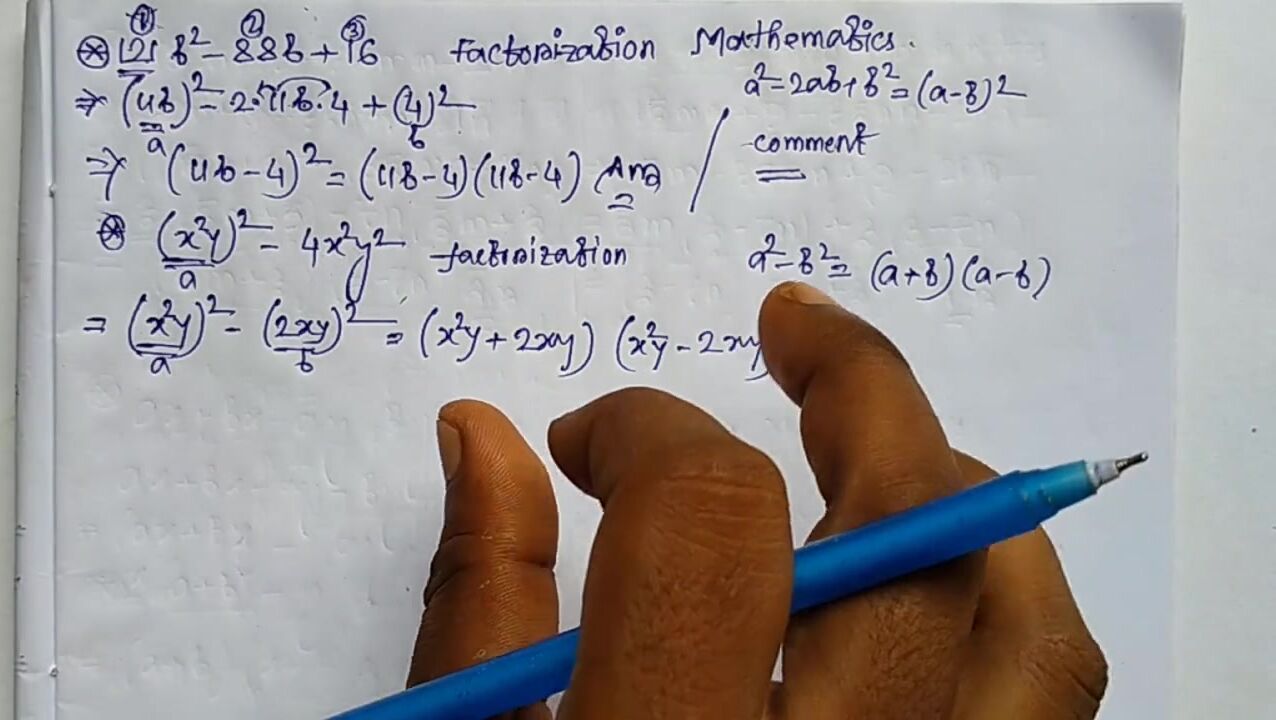 ① ② ③
⊛ 121 b² - 88b + 16 factorization Mathematics.
⇒ (11b)² - 2·11b·4 + (4)² a² - 2ab + b² = (a-b)²
a b
⇒ (11b - 4)² = (11b - 4)(11b - 4) Ans comment
⊛ (x²y)² - 4x²y² factorization a² - b² = (a+b)(a-b)
a
= (x²y)² - (2xy)² = (x²y + 2xy) (x²y - 2xy
a b